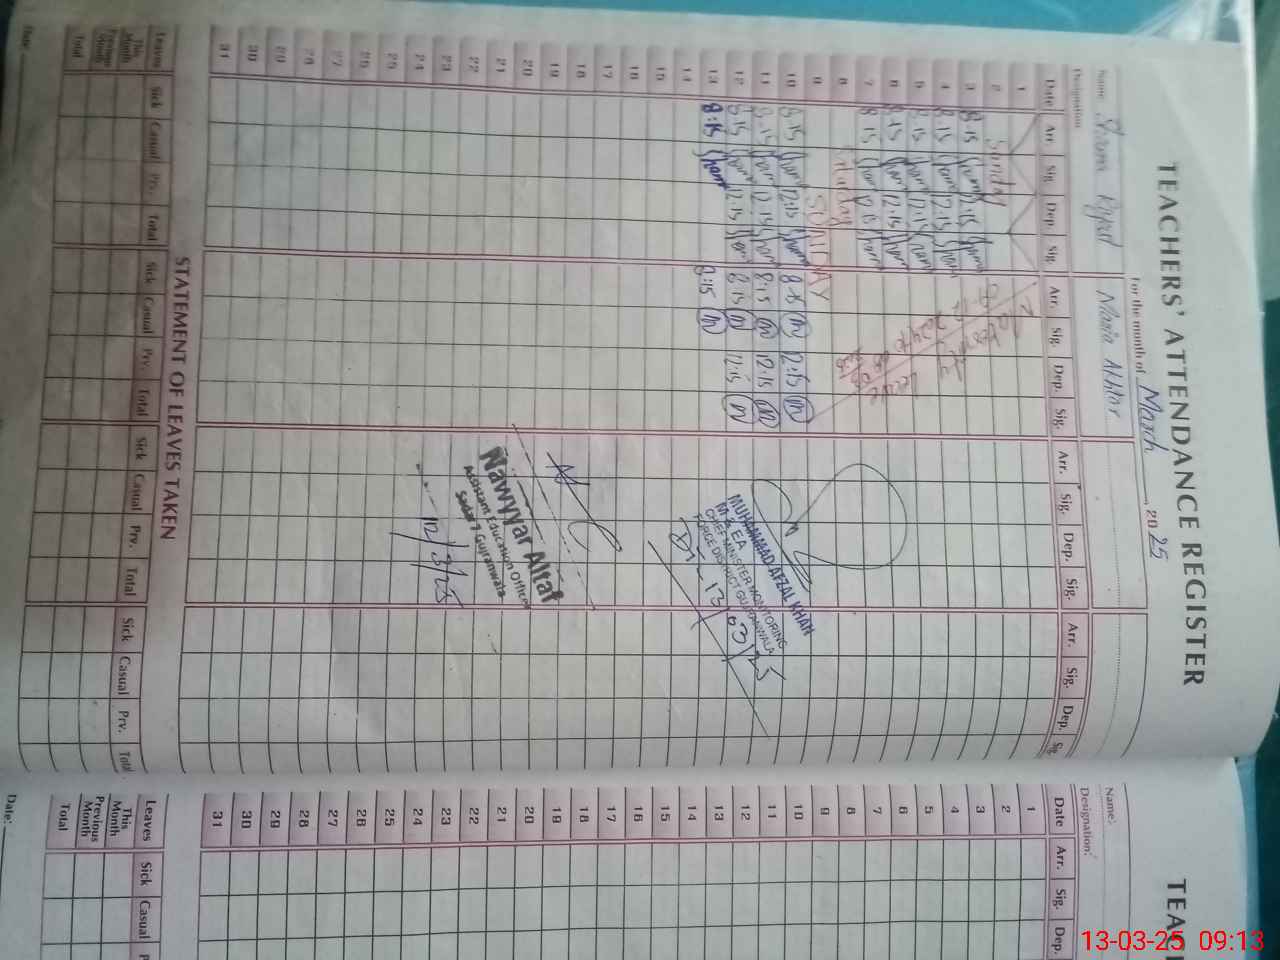 TEACHERS' ATTENDANCE REGISTER
For the month of March 2025
Name Maria Akhtar
Designation
Date Arr. Sig. Dep. Sig. Arr. Sig. Dep. Sig. Arr. Sig. Dep. Sig. Arr. Sig. Dep. Sig.
1
2 Sunday
3 8:15 12:15
4 8:15 12:15
5 8:15 12:15
6 8:15 12:15
7 8:15 12:15
8
9 SUNDAY
10 8:15 12:15 8:15 12:15
11 8:15 12:15 8:15 12:15
12 8:15 12:15 8:15 12:15
13 8:15 8:15
14
15
16
17
18
19
20
21
22
23
24
25
26
27
28
29
30
31
Maternity
Leave
MUHAMMAD AFZAL KHAN
M & EA
CHIEF MINISTER MONITORING
FORCE DISTRICT GUJRANWALA
13/03/25
Nawyyar Altaf
Assistant Education Officer
Gujranwala
12/3/25
STATEMENT OF LEAVES TAKEN
Leaves Sick Casual Prv. Total Sick Casual Prv. Total Sick Casual Prv. Total Sick Casual Prv. Total
This Month
Previous Month
Total
Date:
TEAC
Name:
Designation:
Date Arr. Sig. Dep.
1
2
3
4
5
6
7
8
9
10
11
12
13
14
15
16
17
18
19
20
21
22
23
24
25
26
27
28
29
30
31
Leaves Sick Casual P
This Month
Previous Month
Total
Date:
13-03-25 09:13